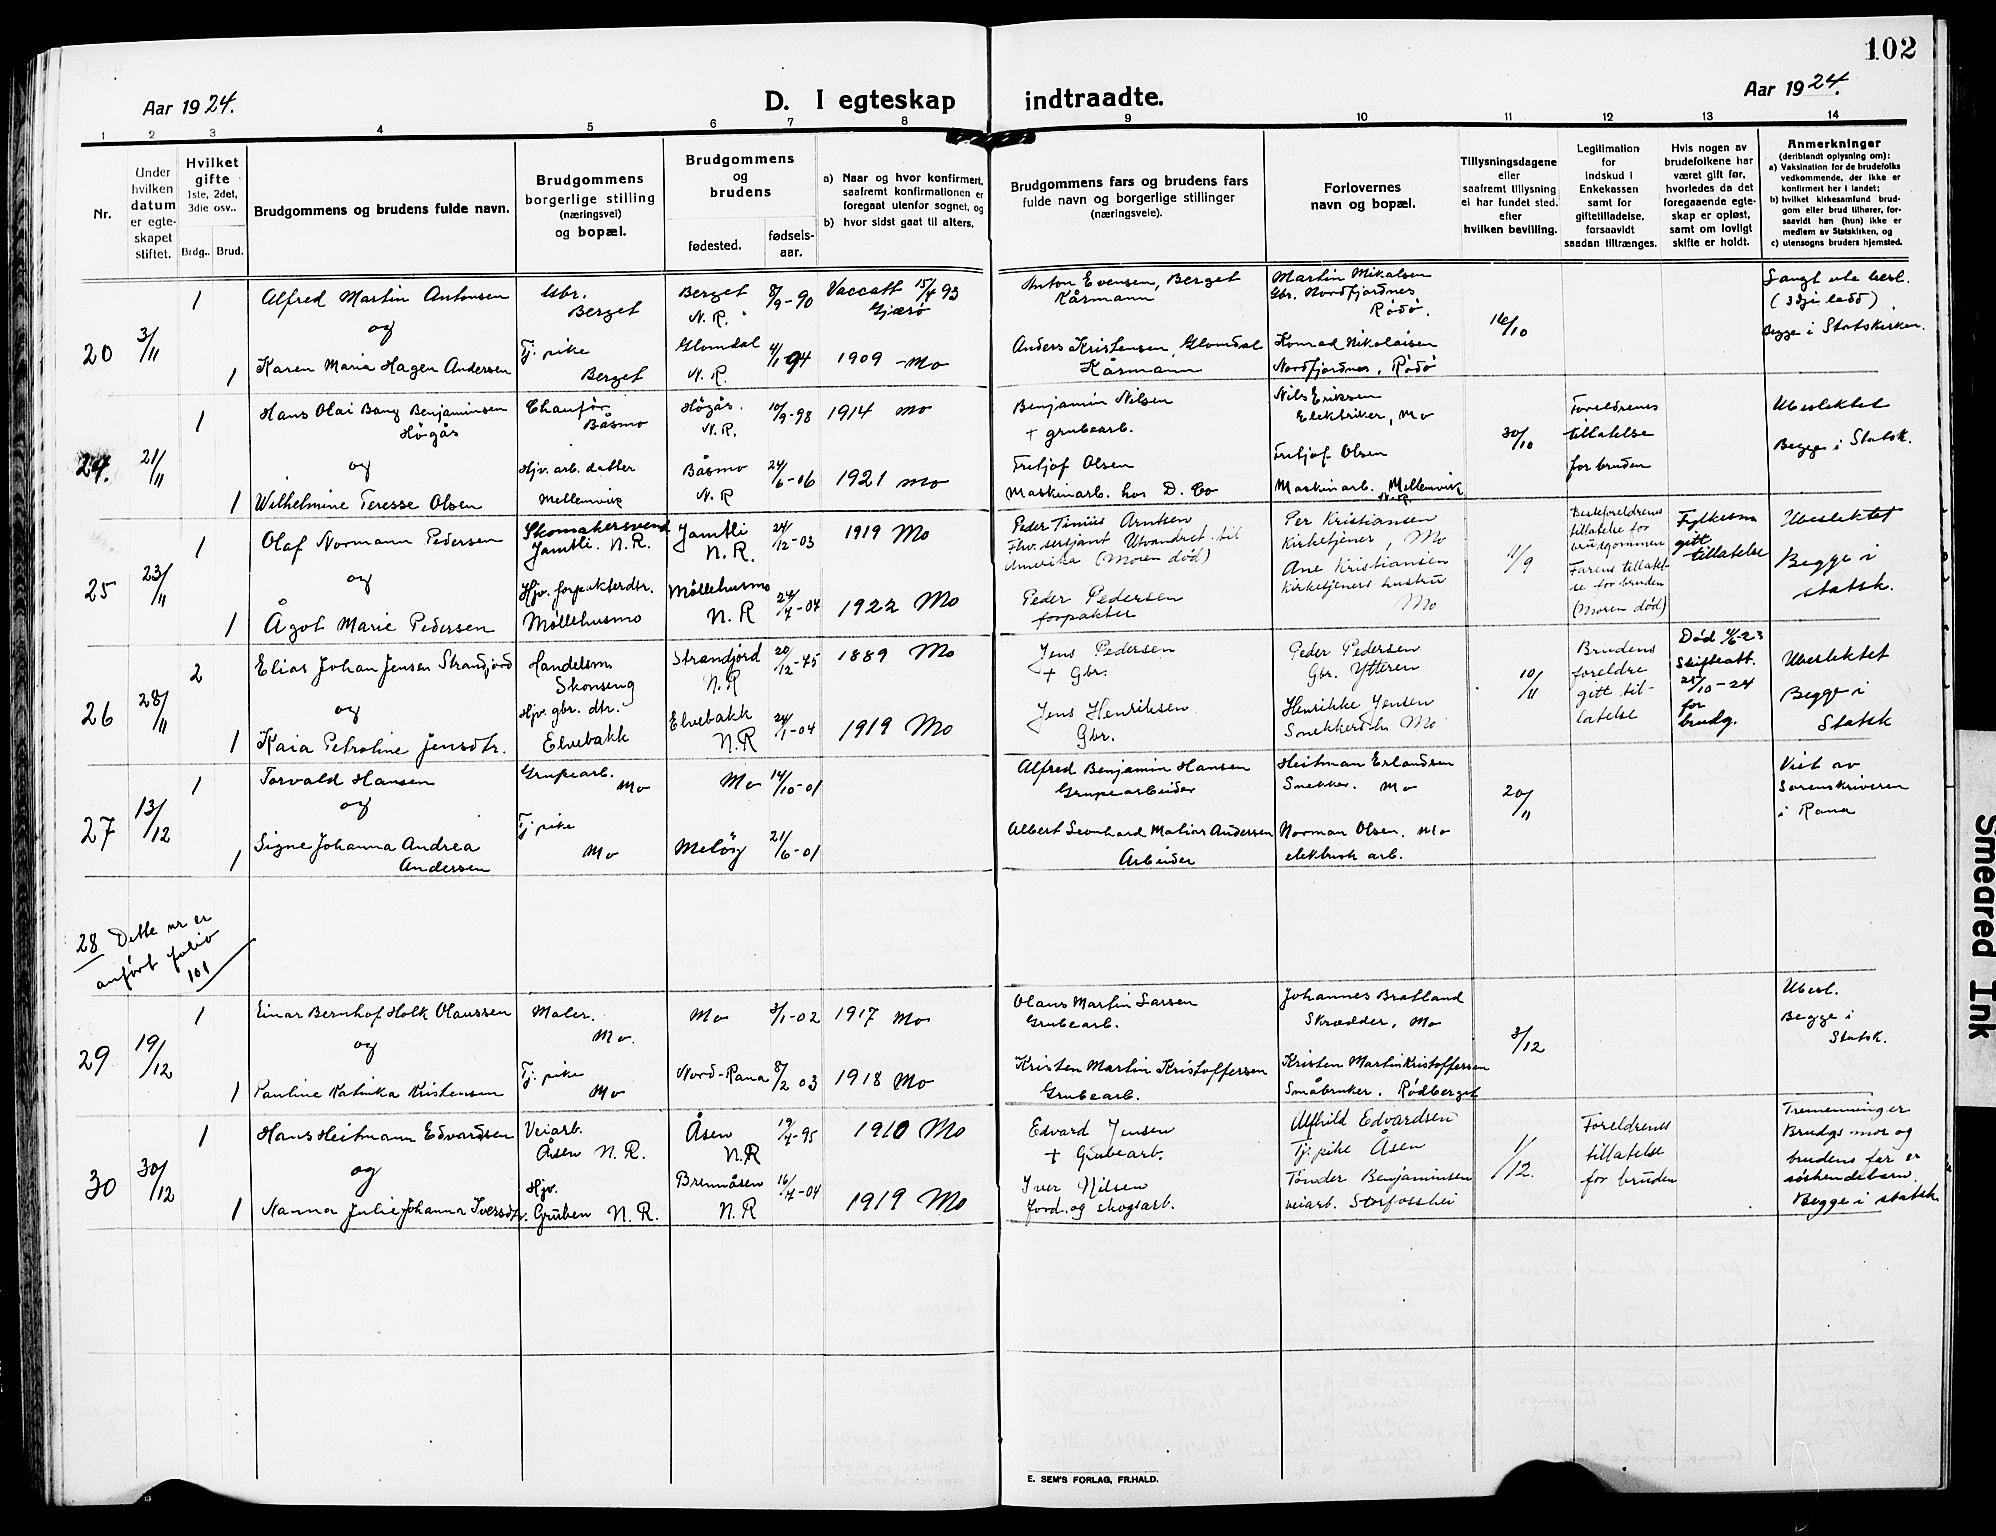 102
Aar 1924.
D. I egteskap indtraadte.
Aar 1924.
1 2 3 4 5 6 7 8 9 10 11 12 13 14
Nr.
Under hvilken datum er egteskapet stiftet.
Hvilket gifte
1ste, 2det, 3die osv..
Brdg.. Brud.
Brudgommens og brudens fulde navn.
Brudgommens borgerlige stilling
(næringsvei)
og bopæl.
Brudgommens og brudens
fødested.
fødsels-aar.
a) Naar og hvor konfirmert, saafremt konfirmationen er foregaat utenfor sognet, og
b) hvor sidst gaat til alters.
Brudgommens fars og brudens fars
fulde navn og borgerlige stillinger
(næringsveie).
Forlovernes
navn og bopæl.
Tillysningsdagene
eller
saafremt tillysning
ei har fundet sted.
efter
hvilken bevilling.
Legitimation
for
indskud i
Enkekassen
samt for
giftetilladelse,
forsaavidt
saadan tiltrænges.
Hvis nogen av
brudefolkene har
været gift før,
hvorledes da det
foregaaende egte-
skap er opløst,
samt om lovligt
skifte er holdt.
Anmerkninger
(deriblandt oplysning om):
a) Vaksination for de brudefolks
vedkommende, der ikke er
konfirmert her i landet;
b) hvilket kirkesamfund brud-
gom eller brud tilhører, for-
saavidt han (hun) ikke er
medlem av Statskirken, og
c) utensogns bruders hjemsted.
20
3/11
1
Alfred Martin Antonsen
Gbr.
Berget
Berget
N. R.
8/9-90
Vaccatt 15/4 93
Gjærø
Anton Evensen, Berget
Kårmann
Martin Mikalsen
Gbr. Nordfjordnes
Rødø.
16/10
Langt ute besl.
(3dje ledd)
Begge i Statskirken.
og
1
Karen Maria Hagen Andersen
Tj. pike
Berget
Glomdal
N. R.
4/1 94
1909 - Mo
Anders Kristensen, Glomdal
Kårmann
Konrad Nikolaisen
Nordfjordnes, Rødø
24.
21/11
1
Hans Olai Bang Benjaminsen
Høgås
Chaufør
Båsmo
Høgås.
N. R.
10/9-98
1914 Mo
Benjamin Nilsen
+ grubearb.
Nils Eriksen
Elektriker, Mo
30/10
Foreldrenes
tillatelse
for bruden
Ubeslektet
Begge i Statsk.
og
1
Wilhelmine Teresse Olsen
Hjv. arb. datter
Mellemvik
Båsmo
N. R
24/6-06
1921 Mo
Fritjof Olsen
Maskinarb. hos D. Co
Fritjof Olsen
Maskinarb. Mellemvik
N. R.
25
23/11
1
Olaf Normann Pedersen
Skomakersvend
Jamtli. N. R.
Jamtli
N. R.
24/12-03
1919 Mo
Peder Tinius Arntsen
Fhv. sersjant Utvandret til
Amerika (Moren død)
Per Kristiansen
Kirketjener, Mo
1/9
Besteforeldrenes
tillatelse for
brudgommen
Farens tillatel-
se for bruden
(Moren død)
Fylkesm.
gitt
tillatelse
Ubeslektet
Begge i
statsk.
og
1
Ågot Marie Pedersen
Hjv. forpakterdtr.
Møllehusmo
Møllehusmo
N. R
24/7-04
1922 Mo
Peder Pedersen
forpakter
Ane Kristiansen
Kirketjeners hustru
Mo
26
28/11
2
Elias Johan Jensen Strandjord
Handelsm.
Skonseng
Strandjord
N. R
20/12-75
1889 Mo
Jens Pedersen
+ Gbr.
Peder Pedersen
Gbr. Ytteren
10/11
Brudens
foreldre
gitt til-
latelse
Død 4/6-23
Skifteatt.
25/10-24
for
brudg.
Ubeslektet
Begge i
Statsk
og
1
Kaia Petroline Jensdtr.
Hjv. gbr. dtr.
Elvebakk
Elvebakk
N. R
24/1-04
1919 Mo
Jens Henriksen
Gbr.
Henrikke Jensen
Snekkerdtr. Mo
27
13/12
1
Torvald Hansen
Grubearb.
Mo
Mo
14/10-01
Alfred Benjamin Hansen
Grubearbeider
Heitman Erlandsen
Snekker. Mo
20/11
Viet av
Sorenskriveren
i Rana
og
1
Signe Johanna Andrea
Andersen
Tj. pike
Mo
Meløy
21/6-01
Albert Leonhard Matias Andersen
Arbeider
Norman Olsen, Mo
elektrisk arb.
28 Dette nr er
anført folio
101
29
19/12
1
Einar Bernhof Holk Olaussen
Maler.
Mo.
Mo
3/1-02
1917 Mo
Olaus Martin Larsen
Grubearb.
Johannes Bratland
Skrædder, Mo
3/12
Ubesl.
Begge i
Statsk.
og
1
Pauline Katinka Kristensen
Tj. pike
Mo
Nord-Rana
8/2 03
1918 Mo
Kristen Martin Kristoffersen
Grubearb.
Kristen Martin Kristoffersen
Småbruker. Rødberget
30
30/12
1
Hans Heitmann Edvardsen
Veiarb.
Åsen N. R.
Åsen
N. R
19/7-95
1910 Mo
Edvard Jensen
+ Grubearb.
Alfhild Edvardsen
Tj. pike Åsen
1/12.
Foreldrenes
tillatelse
for bruden
Tremenninger
Brudgs mor og
brudens far er
søskendebarn.
Begge i statsk.
og
1
Nanna Julie Johanna Iversdtr.
Hjv.
Gruben N. R.
Brennåsen
N. R
16/7-04
1919 Mo
Iver Nilsen
Jord. og skogsarb.
Tønder Benjaminsen
veiarb. Storfosshei
E. SEM'S FORLAG, FR.HALD.
Smeared Ink